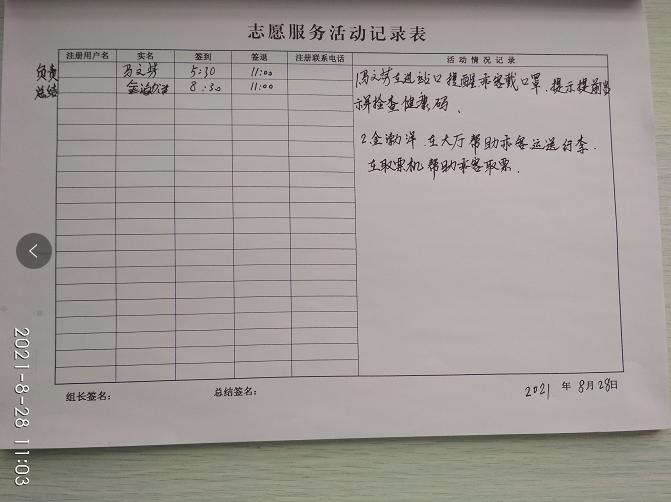 志愿服务活动记录表
注册用户名 实名 签到 签退 注册联系电话 活动情况记录
负责 马文芳 5:30 11:00
总结 金渤洋 8:30 11:00
1.马文芳在进站口提醒乘客戴口罩、提示提前出
示并检查健康码.
2.金渤洋.在大厅帮助乘客运送行李.
在取票机帮助乘客取票.
组长签名: 总结签名:
2021 年 8月 28日
2021-8-28 11:03